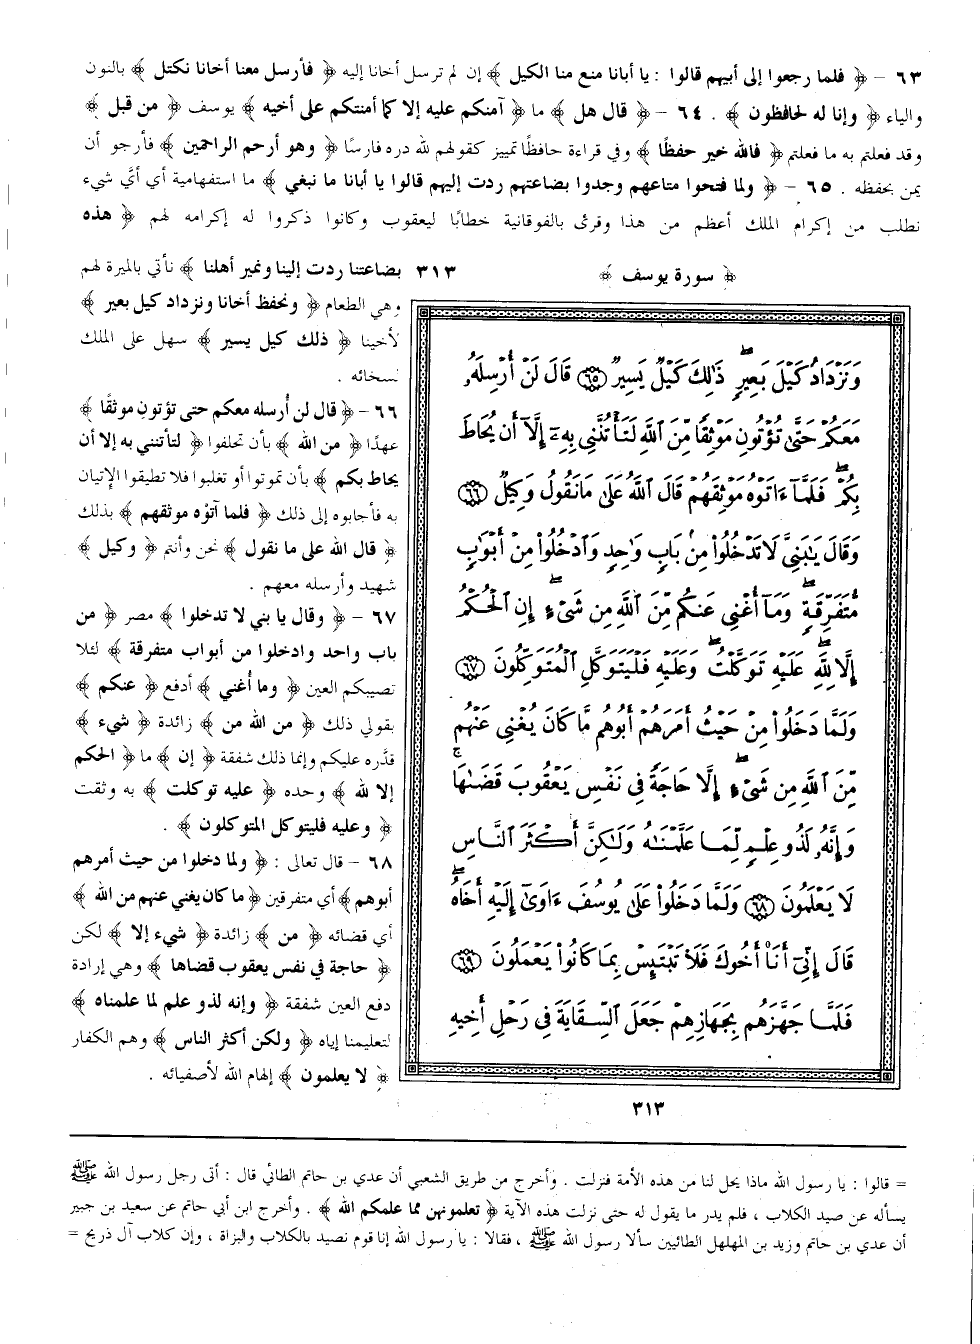 ٦٣ – ﴿ فلما رجعوا إلى أبيهم قالوا : يا أبانا منع منا الكيل ﴾ إن لم ترسل أخانا إليه ﴿ فأرسل معنا أخانا نكتل ﴾ بالنون
والياء ﴿ وإنا له لحافظون ﴾ . ٦٤ – ﴿ قال هل ﴾ ما ﴿ آمنكم عليه إلا كما أمنتكم على أخيه ﴾ يوسف ﴿ من قبل ﴾
وقد فعلتم به ما فعلتم ﴿ فالله خير حفظًا ﴾ وفي قراءة حافظًا تمييز كقولهم لله دره فارسًا ﴿ وهو أرحم الراحمين ﴾ فأرجو أن
يمن بحفظه . ٦٥ – ﴿ ولما فتحوا متاعهم وجدوا بضاعتهم ردت إليهم قالوا يا أبانا ما نبغي ﴾ ما استفهامية أي أيَّ شيء
نطلب من إكرام الملك أعظم من هذا وقرئ بالفوقانية خطابًا ليعقوب وكانوا ذكروا له إكرامه لهم ﴿ هذه
بضاعتنا ردت إلينا ونمير أهلنا ﴾ نأتي بالميرة لهم
وهي الطعام ﴿ ونحفظ أخانا ونزداد كيل بعير ﴾
لأخينا ﴿ ذلك كيل يسير ﴾ سهل على الملك
لسخائه .
٦٦ – ﴿ قال لن أُرسله معكم حتى تؤتون موثقًا ﴾
عهدًا ﴿ من الله ﴾ بأن تحلفوا ﴿ لتأتنني به إلا أن
يحاط بكم ﴾ بأن تموتوا أو تغلبوا فلا تطيقوا الإتيان
به فأجابوه إلى ذلك ﴿ فلما آتوْه موثقهم ﴾ بذلك
﴿ قال الله على ما نقول ﴾ نحن وأنتم ﴿ وكيل ﴾
شهيد وأرسله معهم .
٦٧ – ﴿ وقال يا بني لا تدخلوا ﴾ مصر ﴿ من
باب واحد وادخلوا من أبواب متفرقة ﴾ لئلا
تصيبكم العين ﴿ وما أُغني ﴾ أدفع ﴿ عنكم ﴾
بقولي ذلك ﴿ من الله من ﴾ زائدة ﴿ شيء ﴾
قدَّره عليكم وإنما ذلك شفقة ﴿ إن ﴾ ما ﴿ الحكم
إلا لله ﴾ وحده ﴿ عليه توكلت ﴾ به وثقت
﴿ وعليه فليتوكل المتوكلون ﴾ .
٦٨ – قال تعالى : ﴿ ولما دخلوا من حيث أمرهم
أبوهم ﴾ أي متفرقين ﴿ ما كان يغني عنهم من الله ﴾
أي قضائه ﴿ من ﴾ زائدة ﴿ شيء إلا ﴾ لكن
﴿ حاجة في نفس يعقوب قضاها ﴾ وهي إرادة
دفع العين شفقة ﴿ وإنه لذو علم لما علمناه ﴾
لتعليمنا إياه ﴿ ولكن أكثر الناس ﴾ وهم الكفار
﴿ لا يعلمون ﴾ إلهام الله لأصفيائه .
﴿ سورة يوسف ﴾ ٣١٣
وَنَزْدَادُ كَيْلَ بَعِيرٍ ۖ ذَٰلِكَ كَيْلٌ يَسِيرٌ ٦٥ قَالَ لَنْ أُرْسِلَهُۥ
مَعَكُمْ حَتَّىٰ تُؤْتُونِ مَوْثِقًا مِّنَ ٱللَّهِ لَتَأْتُنَّنِى بِهِۦٓ إِلَّآ أَن يُحَاطَ
بِكُمْ ۖ فَلَمَّآ ءَاتَوْهُ مَوْثِقَهُمْ قَالَ ٱللَّهُ عَلَىٰ مَا نَقُولُ وَكِيلٌ ٦٦
وَقَالَ يَٰبَنِىَّ لَا تَدْخُلُوا۟ مِنۢ بَابٍ وَٰحِدٍ وَٱدْخُلُوا۟ مِنْ أَبْوَٰبٍ
مُّتَفَرِّقَةٍ ۖ وَمَآ أُغْنِى عَنكُم مِّنَ ٱللَّهِ مِن شَىْءٍ ۖ إِنِ ٱلْحُكْمُ
إِلَّا لِلَّهِ ۖ عَلَيْهِ تَوَكَّلْتُ ۖ وَعَلَيْهِ فَلْيَتَوَكَّلِ ٱلْمُتَوَكِّلُونَ ٦٧
وَلَمَّا دَخَلُوا۟ مِنْ حَيْثُ أَمَرَهُمْ أَبُوهُم مَّا كَانَ يُغْنِى عَنْهُم
مِّنَ ٱللَّهِ مِن شَىْءٍ إِلَّا حَاجَةً فِى نَفْسِ يَعْقُوبَ قَضَىٰهَا ۚ
وَإِنَّهُۥ لَذُو عِلْمٍ لِّمَا عَلَّمْنَٰهُ وَلَٰكِنَّ أَكْثَرَ ٱلنَّاسِ
لَا يَعْلَمُونَ ٦٨ وَلَمَّا دَخَلُوا۟ عَلَىٰ يُوسُفَ ءَاوَىٰٓ إِلَيْهِ أَخَاهُ ۖ
قَالَ إِنِّىٓ أَنَا۠ أَخُوكَ فَلَا تَبْتَئِسْ بِمَا كَانُوا۟ يَعْمَلُونَ ٦٩
فَلَمَّا جَهَّزَهُم بِجَهَازِهِمْ جَعَلَ ٱلسِّقَايَةَ فِى رَحْلِ أَخِيهِ
٣١٣
= قالوا : يا رسول الله ماذا يحل لنا من هذه الأمة فنزلت . وأخرج من طريق الشعبي أن عدي بن حاتم الطائي قال : أتى رجل رسول الله ﷺ
يسأله عن صيد الكلاب ، فلم يدر ما يقول له حتى نزلت هذه الآية ﴿ تعلمونهن مما علمكم الله ﴾ . وأخرج ابن أبي حاتم عن سعيد بن جبير
أن عدي بن حاتم وزيد بن المهلهل الطائيين سألا رسول الله ﷺ ، فقالا : يا رسول الله إنا قوم نصيد بالكلاب والبزاة ، وإن كلاب آل ذريح =